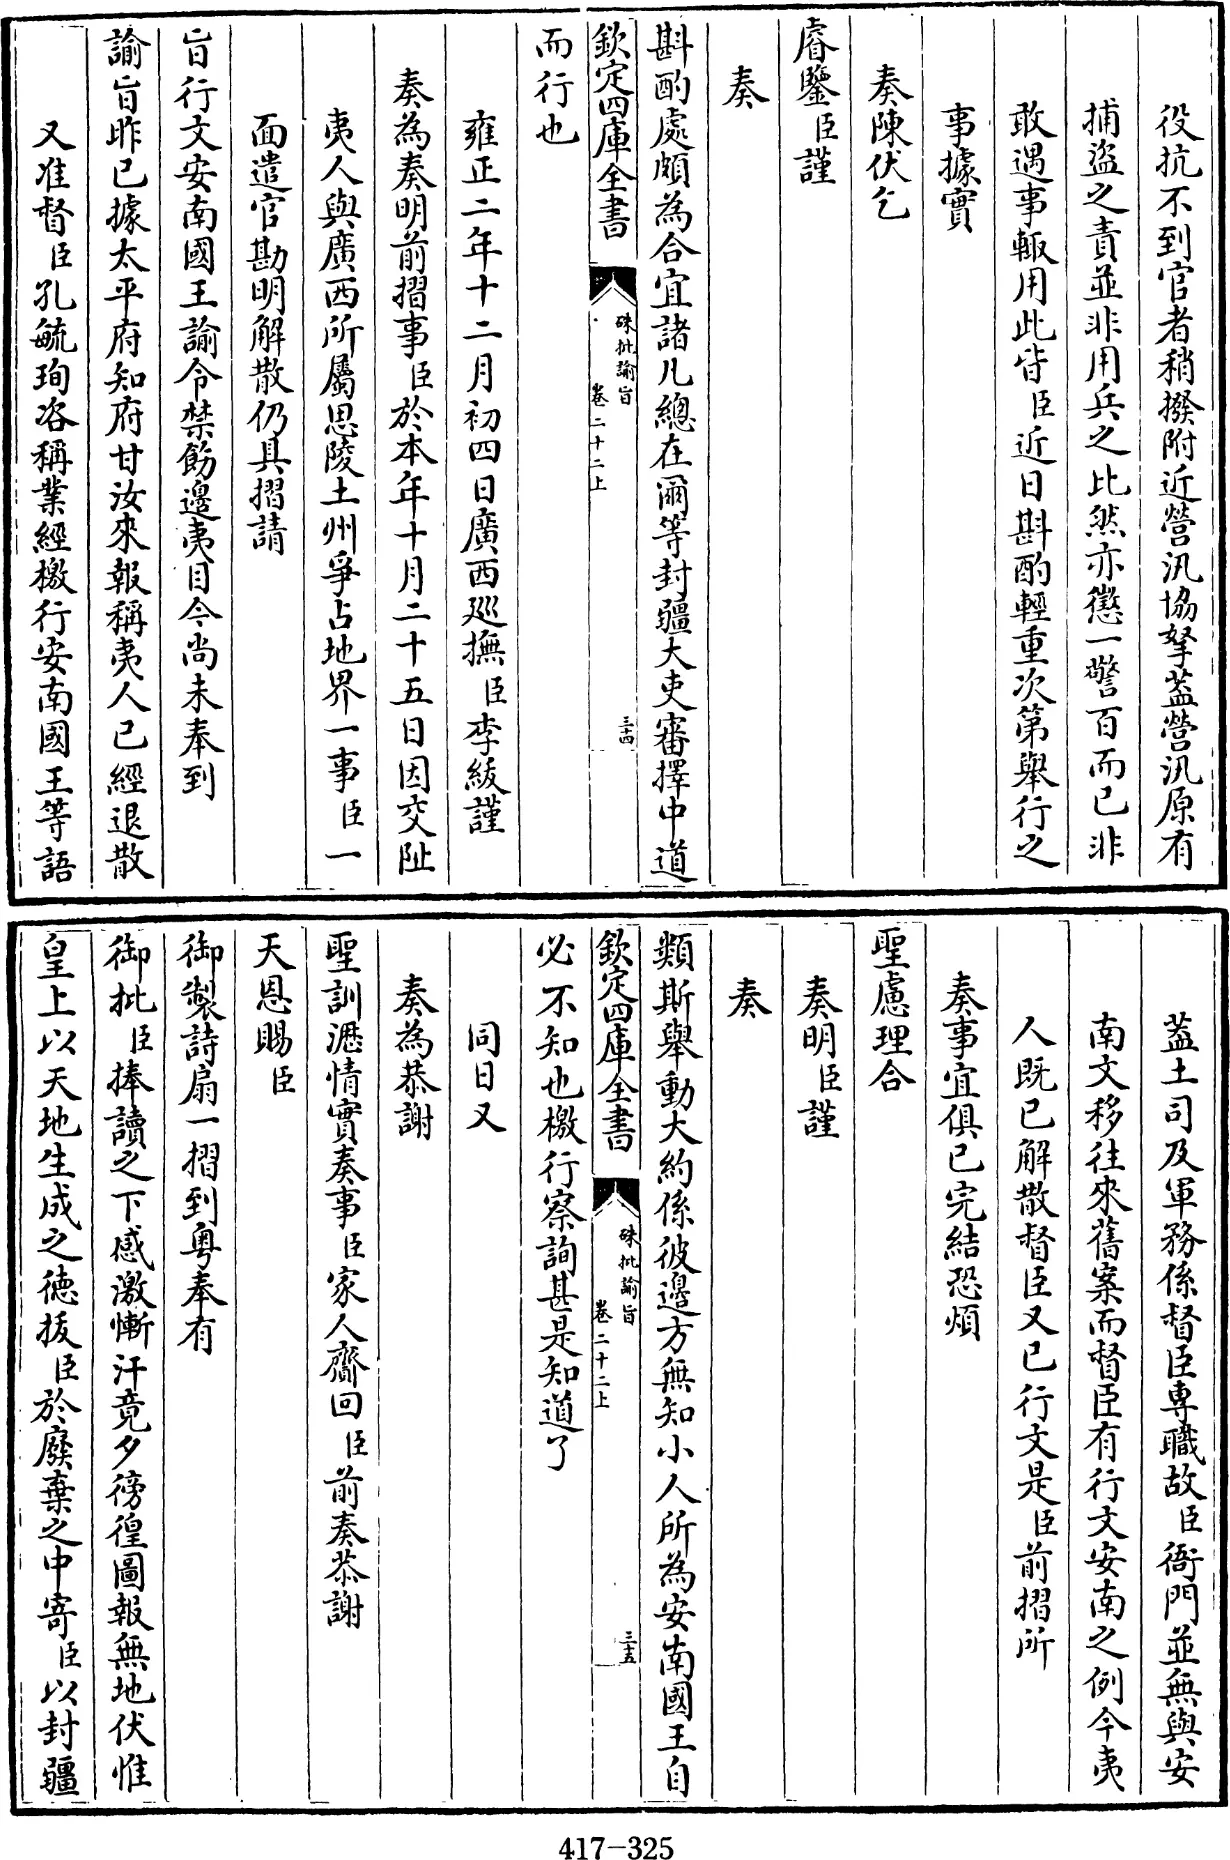 役抗不到官者稍撥附近營汛協拏蓋營汛原有
捕盜之責並非用兵之比然亦懲一警百而已非
敢遇事輙用此皆臣近日斟酌輕重次第舉行之
事據實
奏陳伏乞
睿鑒臣謹
奏
斟酌處頗為合宜諸凡總在爾等封疆大吏審擇中道
欽定四庫全書
硃批諭旨
卷二十二上
三十四
而行也
雍正二年十二月初四日廣西廵撫臣李紱謹
奏為奏明前摺事臣於本年十月二十五日因交阯
夷人與廣西所屬思陵土州爭占地界一事臣一
面遣官勘明解散仍具摺請
旨行文安南國王諭令禁飭邊夷目今尚未奉到
諭旨昨已據太平府知府甘汝來報稱夷人已經退散
又准督臣孔毓珣咨稱業經檄行安南國王等語
蓋土司及軍務係督臣専職故臣衙門並無與安
南文移往來舊案而督臣有行文安南之例今夷
人既已解散督臣又已行文是臣前摺所
奏事宜俱已完結恐煩
聖慮理合
奏明臣謹
奏
類斯舉動大約係彼邊方無知小人所為安南國王自
欽定四庫全書
硃批諭旨
卷二十二上
三十五
必不知也檄行察詢甚是知道了
同日又
奏為恭謝
聖訓瀝情實奏事臣家人齎回臣前奏恭謝
天恩賜臣
御製詩扇一摺到粤奉有
御批臣捧讀之下感激慚汗竟夕徬徨圖報無地伏惟
皇上以天地生成之德拔臣於廢棄之中寄臣以封疆
417-325